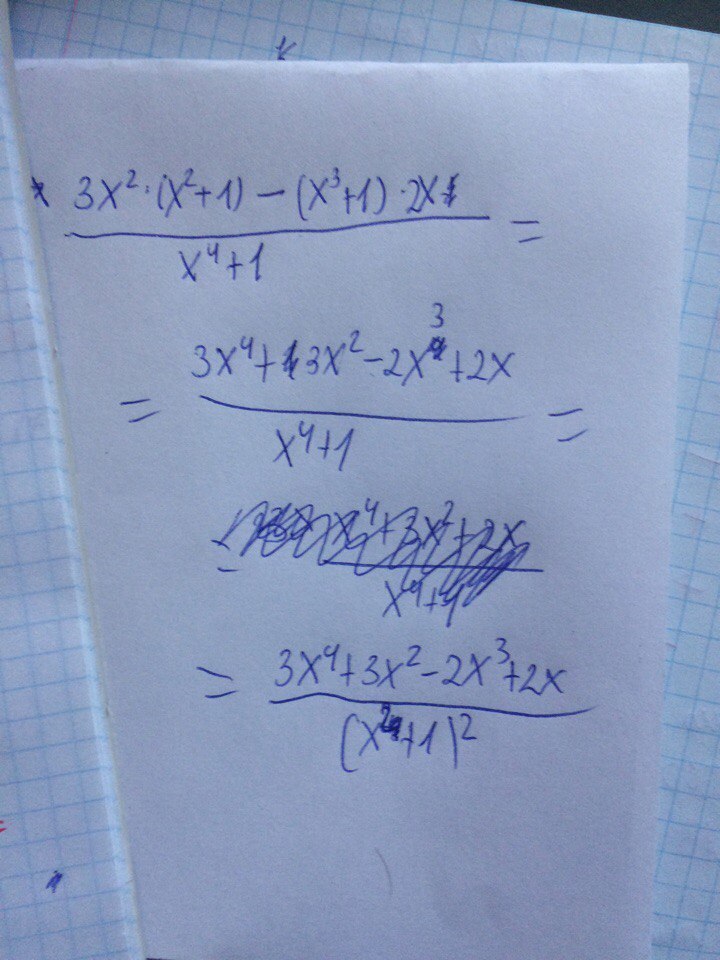 3x²·(x²+1) − (x³+1)·2x =
x⁴+1
= 3x⁴+3x²−2x³+2x =
x⁴+1
= x⁴+3x²+2x
x⁴+1
= 3x⁴+3x²−2x³+2x
(x²+1)²